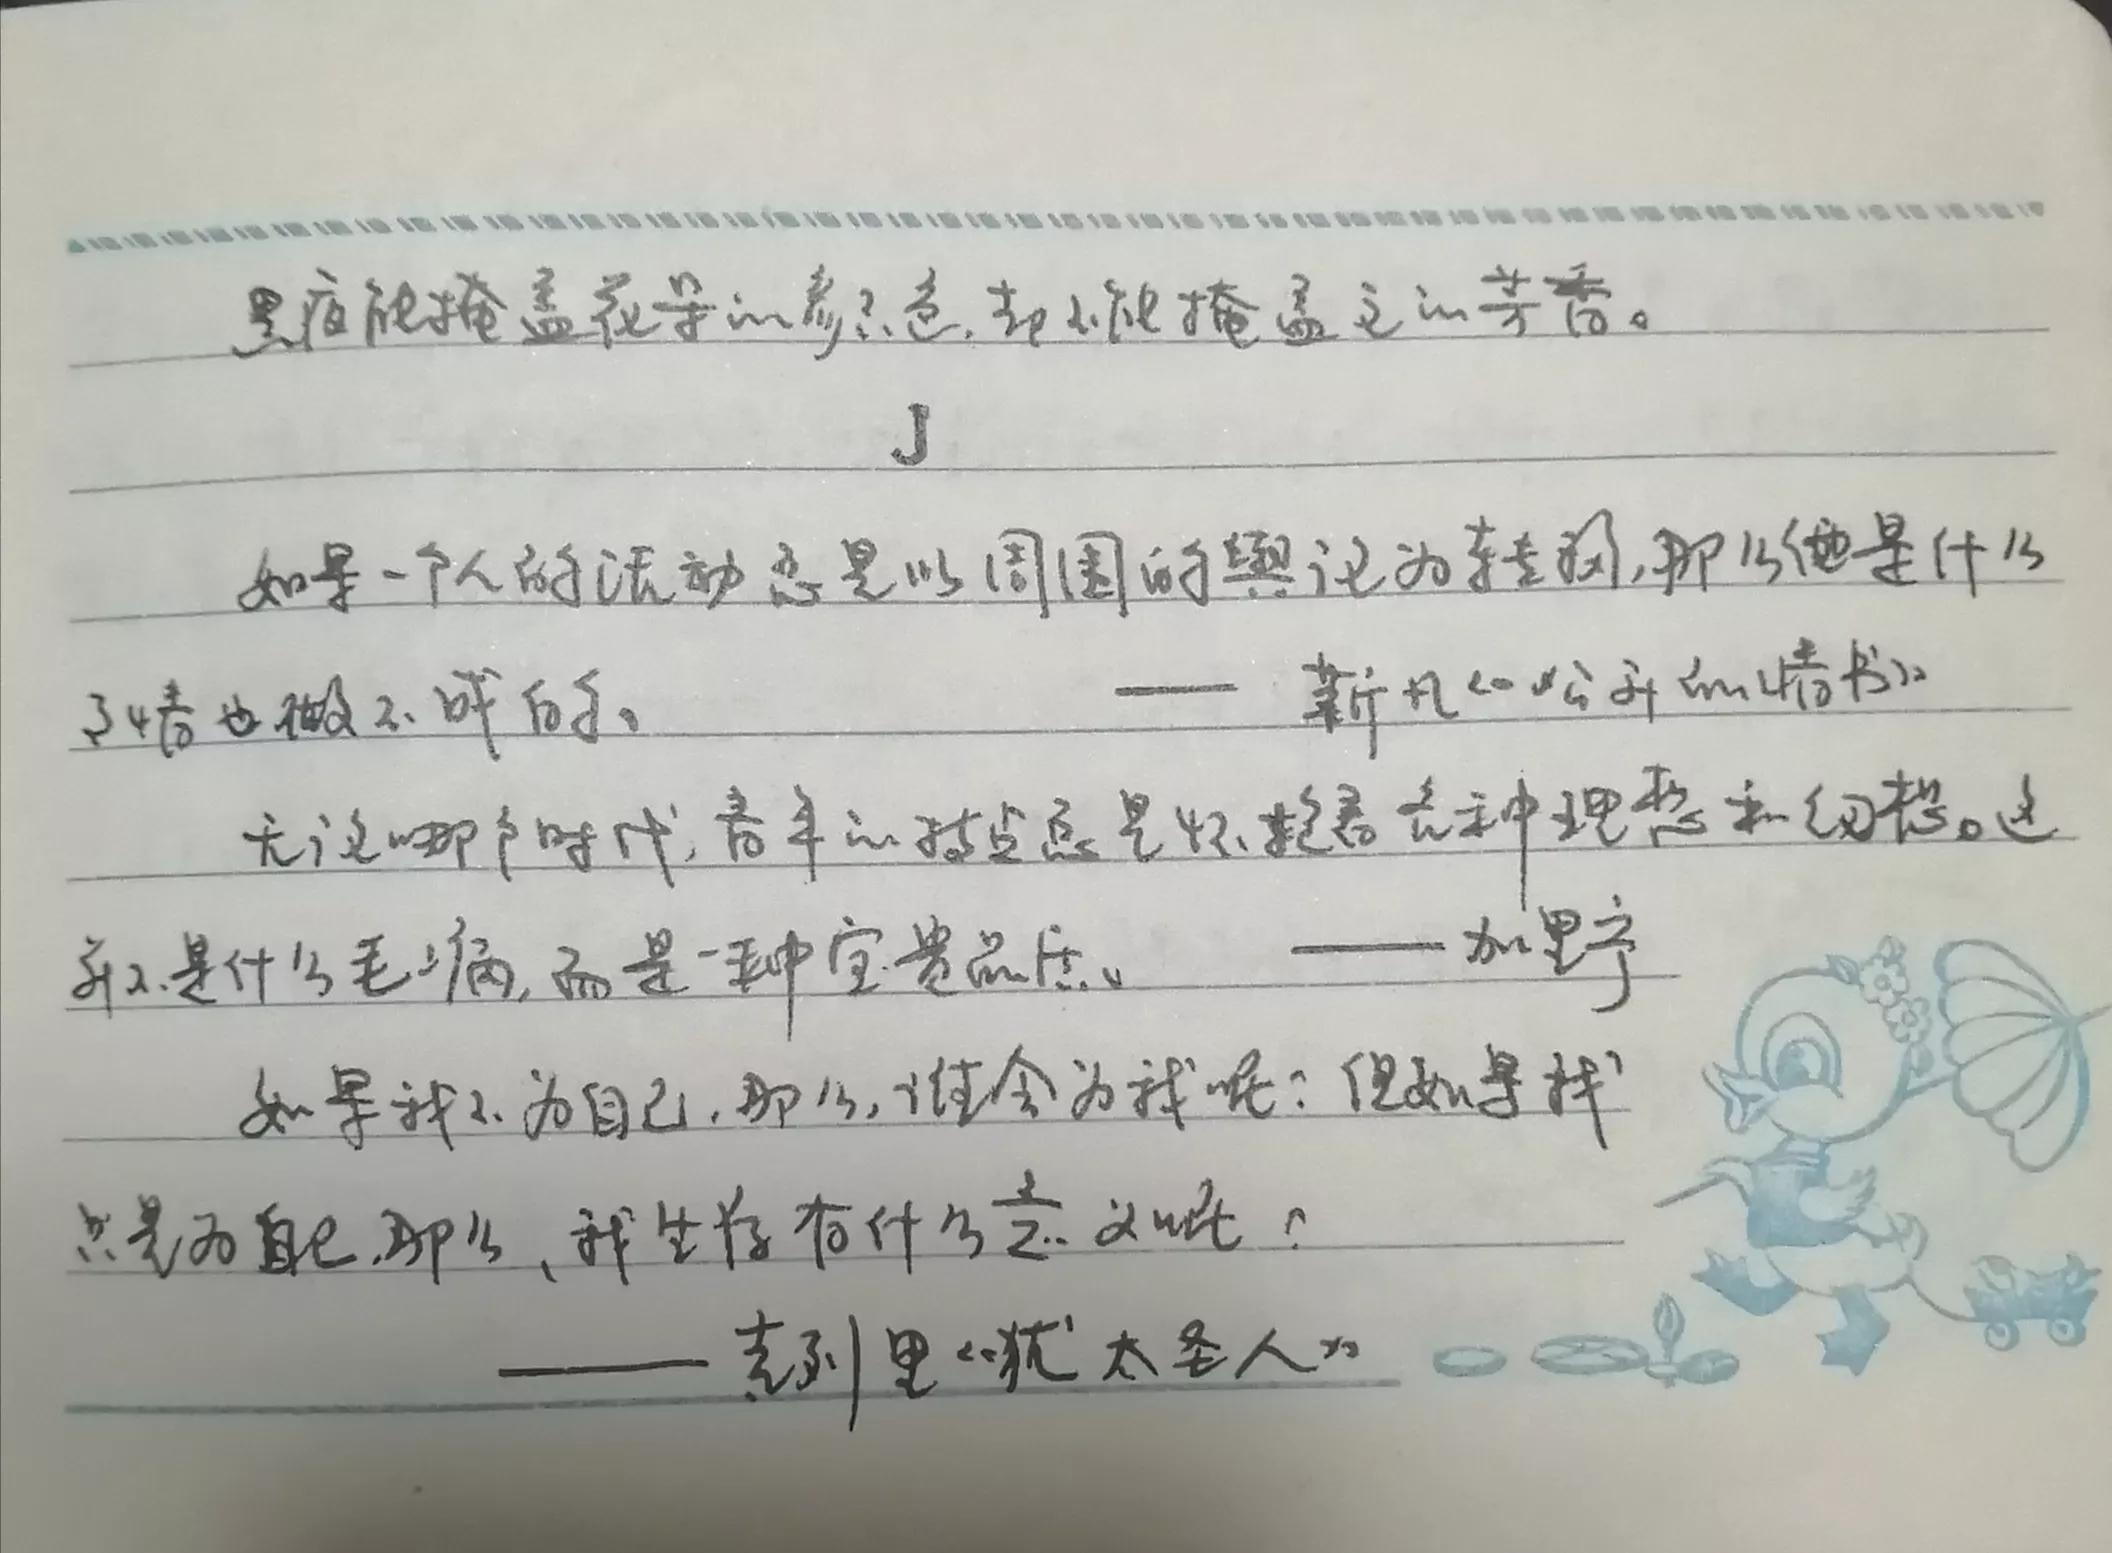 黑夜能掩盖花朵的彩色,却不能掩盖它的芳香。
J
如果一个人的活动总是以周围的舆论为转移,那么他是什么
事情也做不成的。 —— 靳凡《公开的情书》
无论哪个时代,青年的特点总是怀抱着各种理想和幻想。这
并不是什么毛病,而是一种宝贵品质。 —— 加里宁
如果我不为自己,那么,谁会为我呢?但如果我
只是为自己,那么、我生存有什么意义呢?
—— 克列里《犹太圣人》